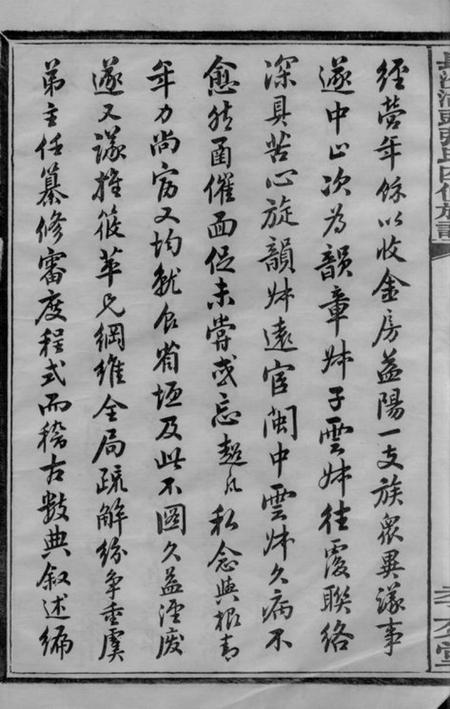 經營年餘以收金房益陽一支族眾異議事
遂中止次為韻章姊子雲姊往覆聯絡
深具苦心旋韻姊遠官閩中雲姊久病不
愈然函催面促未嘗或忘超凡私念與根青
年力尚富又均就食省垣及此不圖久益湮廢
遂又議推筱苹兄綱維全局疏解紛爭重虞
弟主任纂修審度程式而稽古數典叙述編